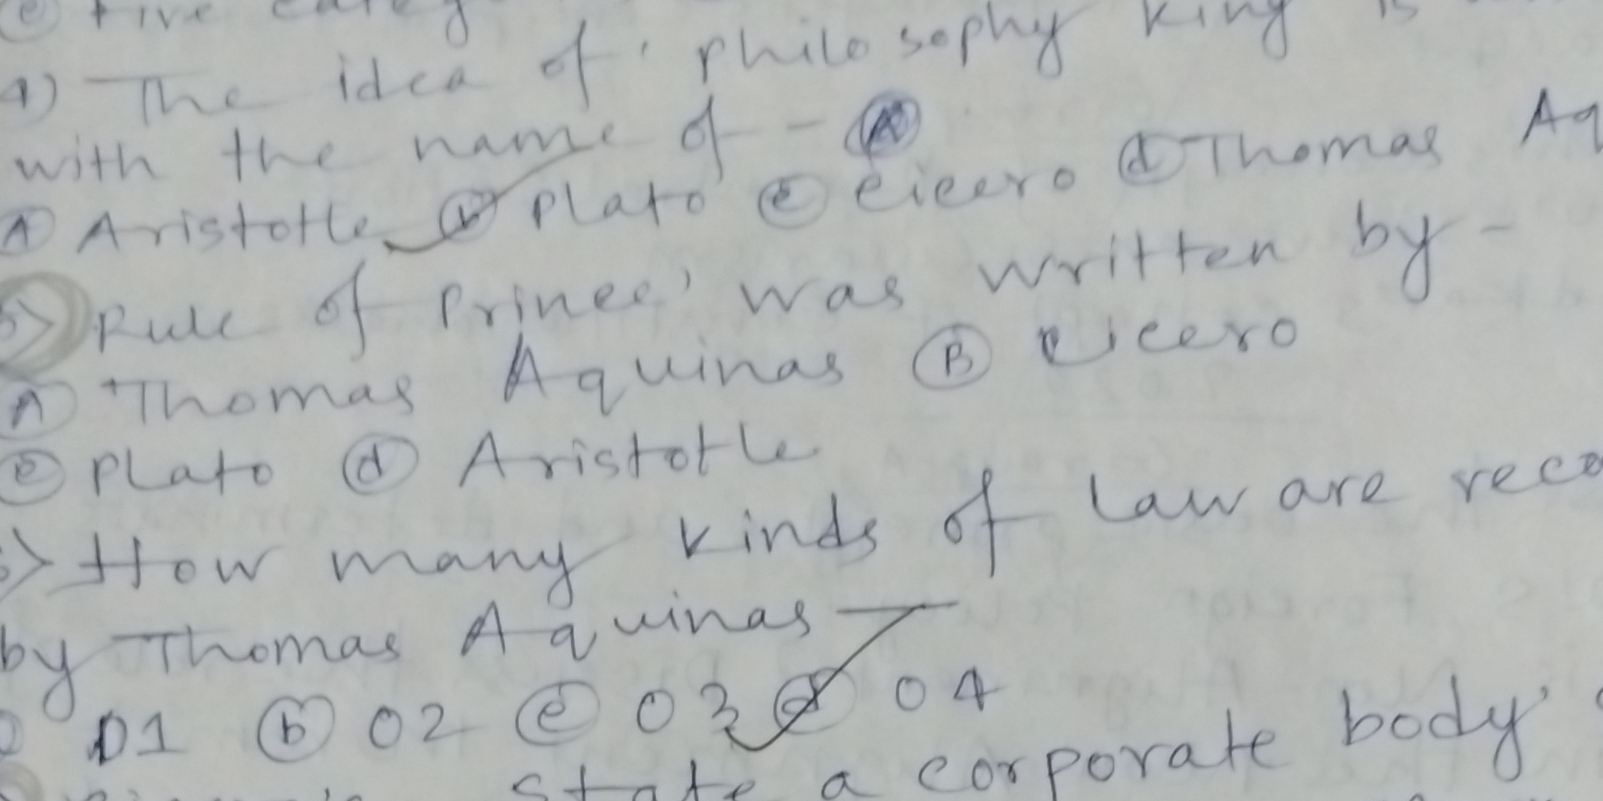 Five
4) The idea of 'philosophy King is
with the name of - (A)
(A) Aristotle (b) Plato (c) Cicero (d) Thomas Aq
5) Rule of Prince' was written by -
(A) Thomas Aquinas (B) Cicero
(c) Plato (d) Aristotle
6) How many kinds of law are reco
by Thomas Aquinas —
01 (b) 02 (c) 03 (d) 04
state a corporate body'